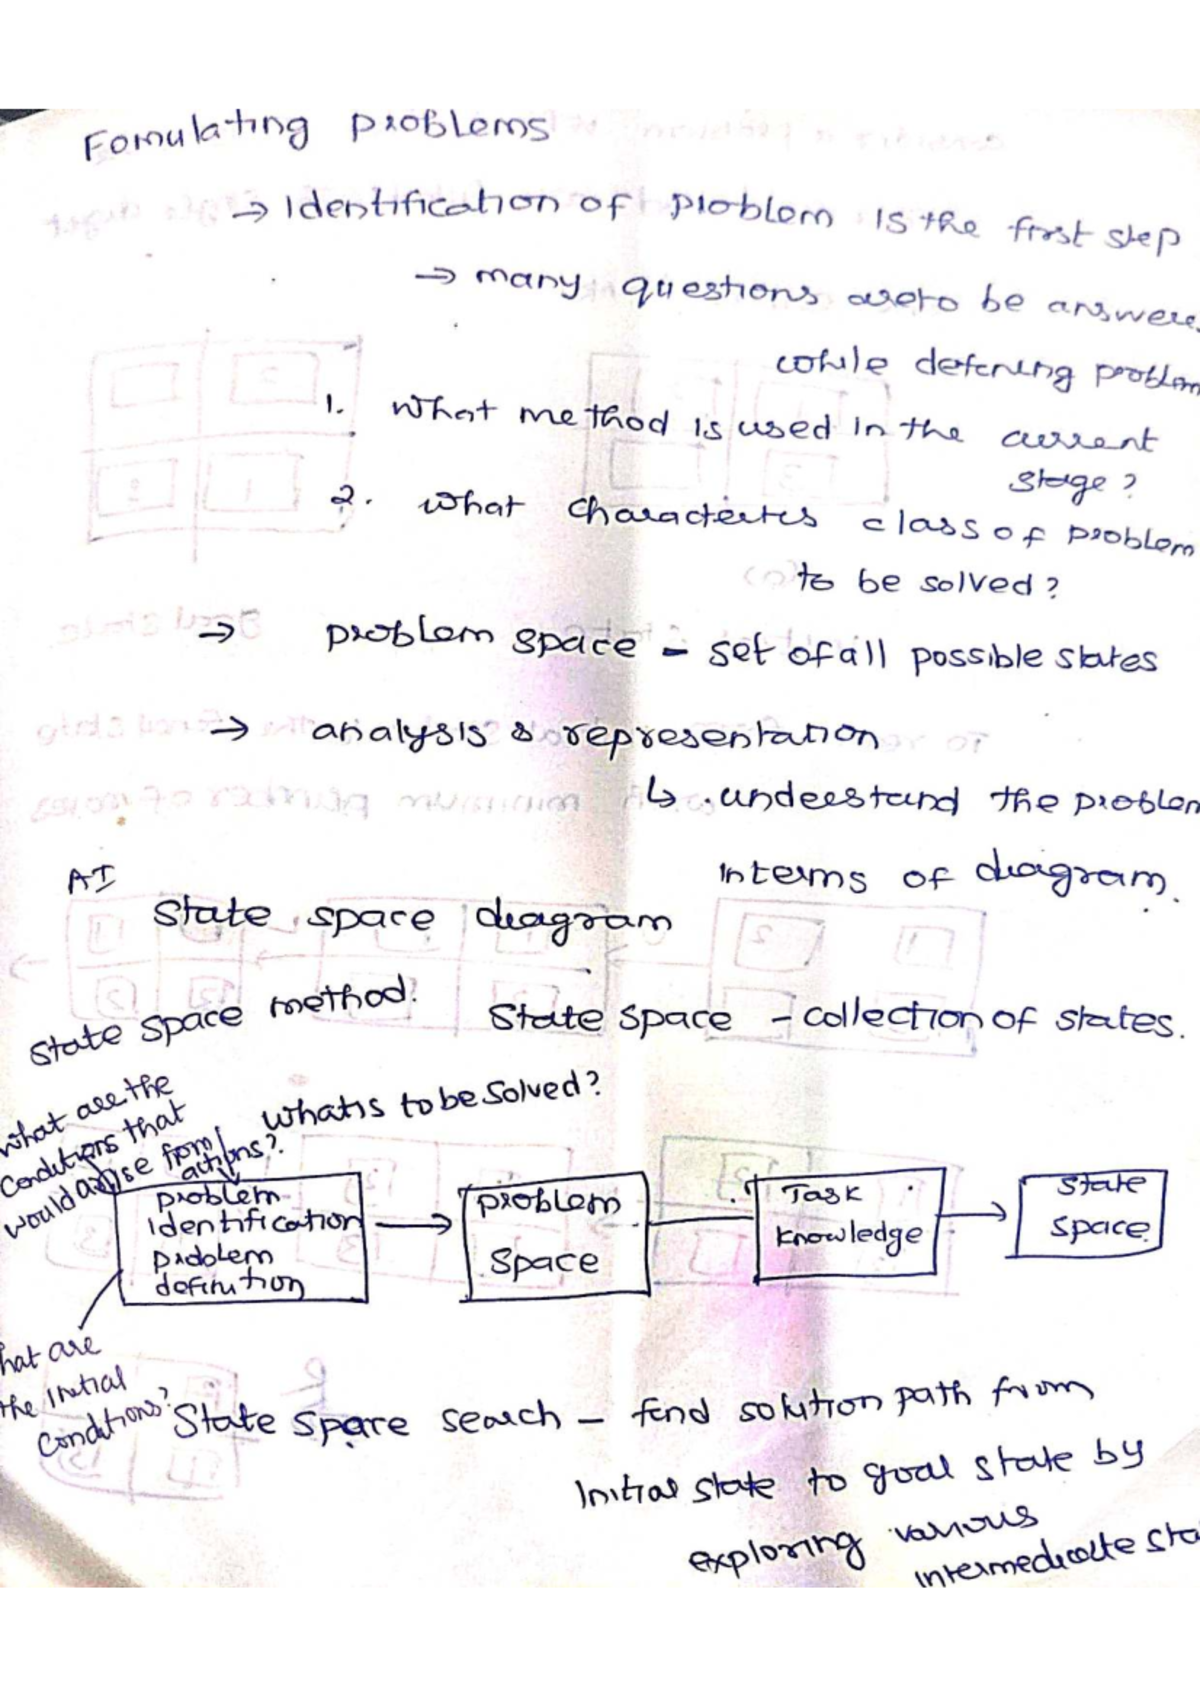 Fomulating problems
→ Identification of problem is the first step
→ many questions are to be answere
while defining problem
1. What method is used in the current
stage?
2. what characterites class of problem
to be solved?
→ problem space - set of all possible states
→ analysis & representation
↳ understand the problem
interms of diagram.
AI
State space diagram
State space method.
State space - collection of states.
What are the
conditions that
would arise from
actions?
What is to be solved?
problem
Identification
problem
definition
problem
Space
Task
knowledge
State
space
hat are
the initial
conditions?
State space search - find solution path from
Initial state to goal state by
exploring various
intermediate sta